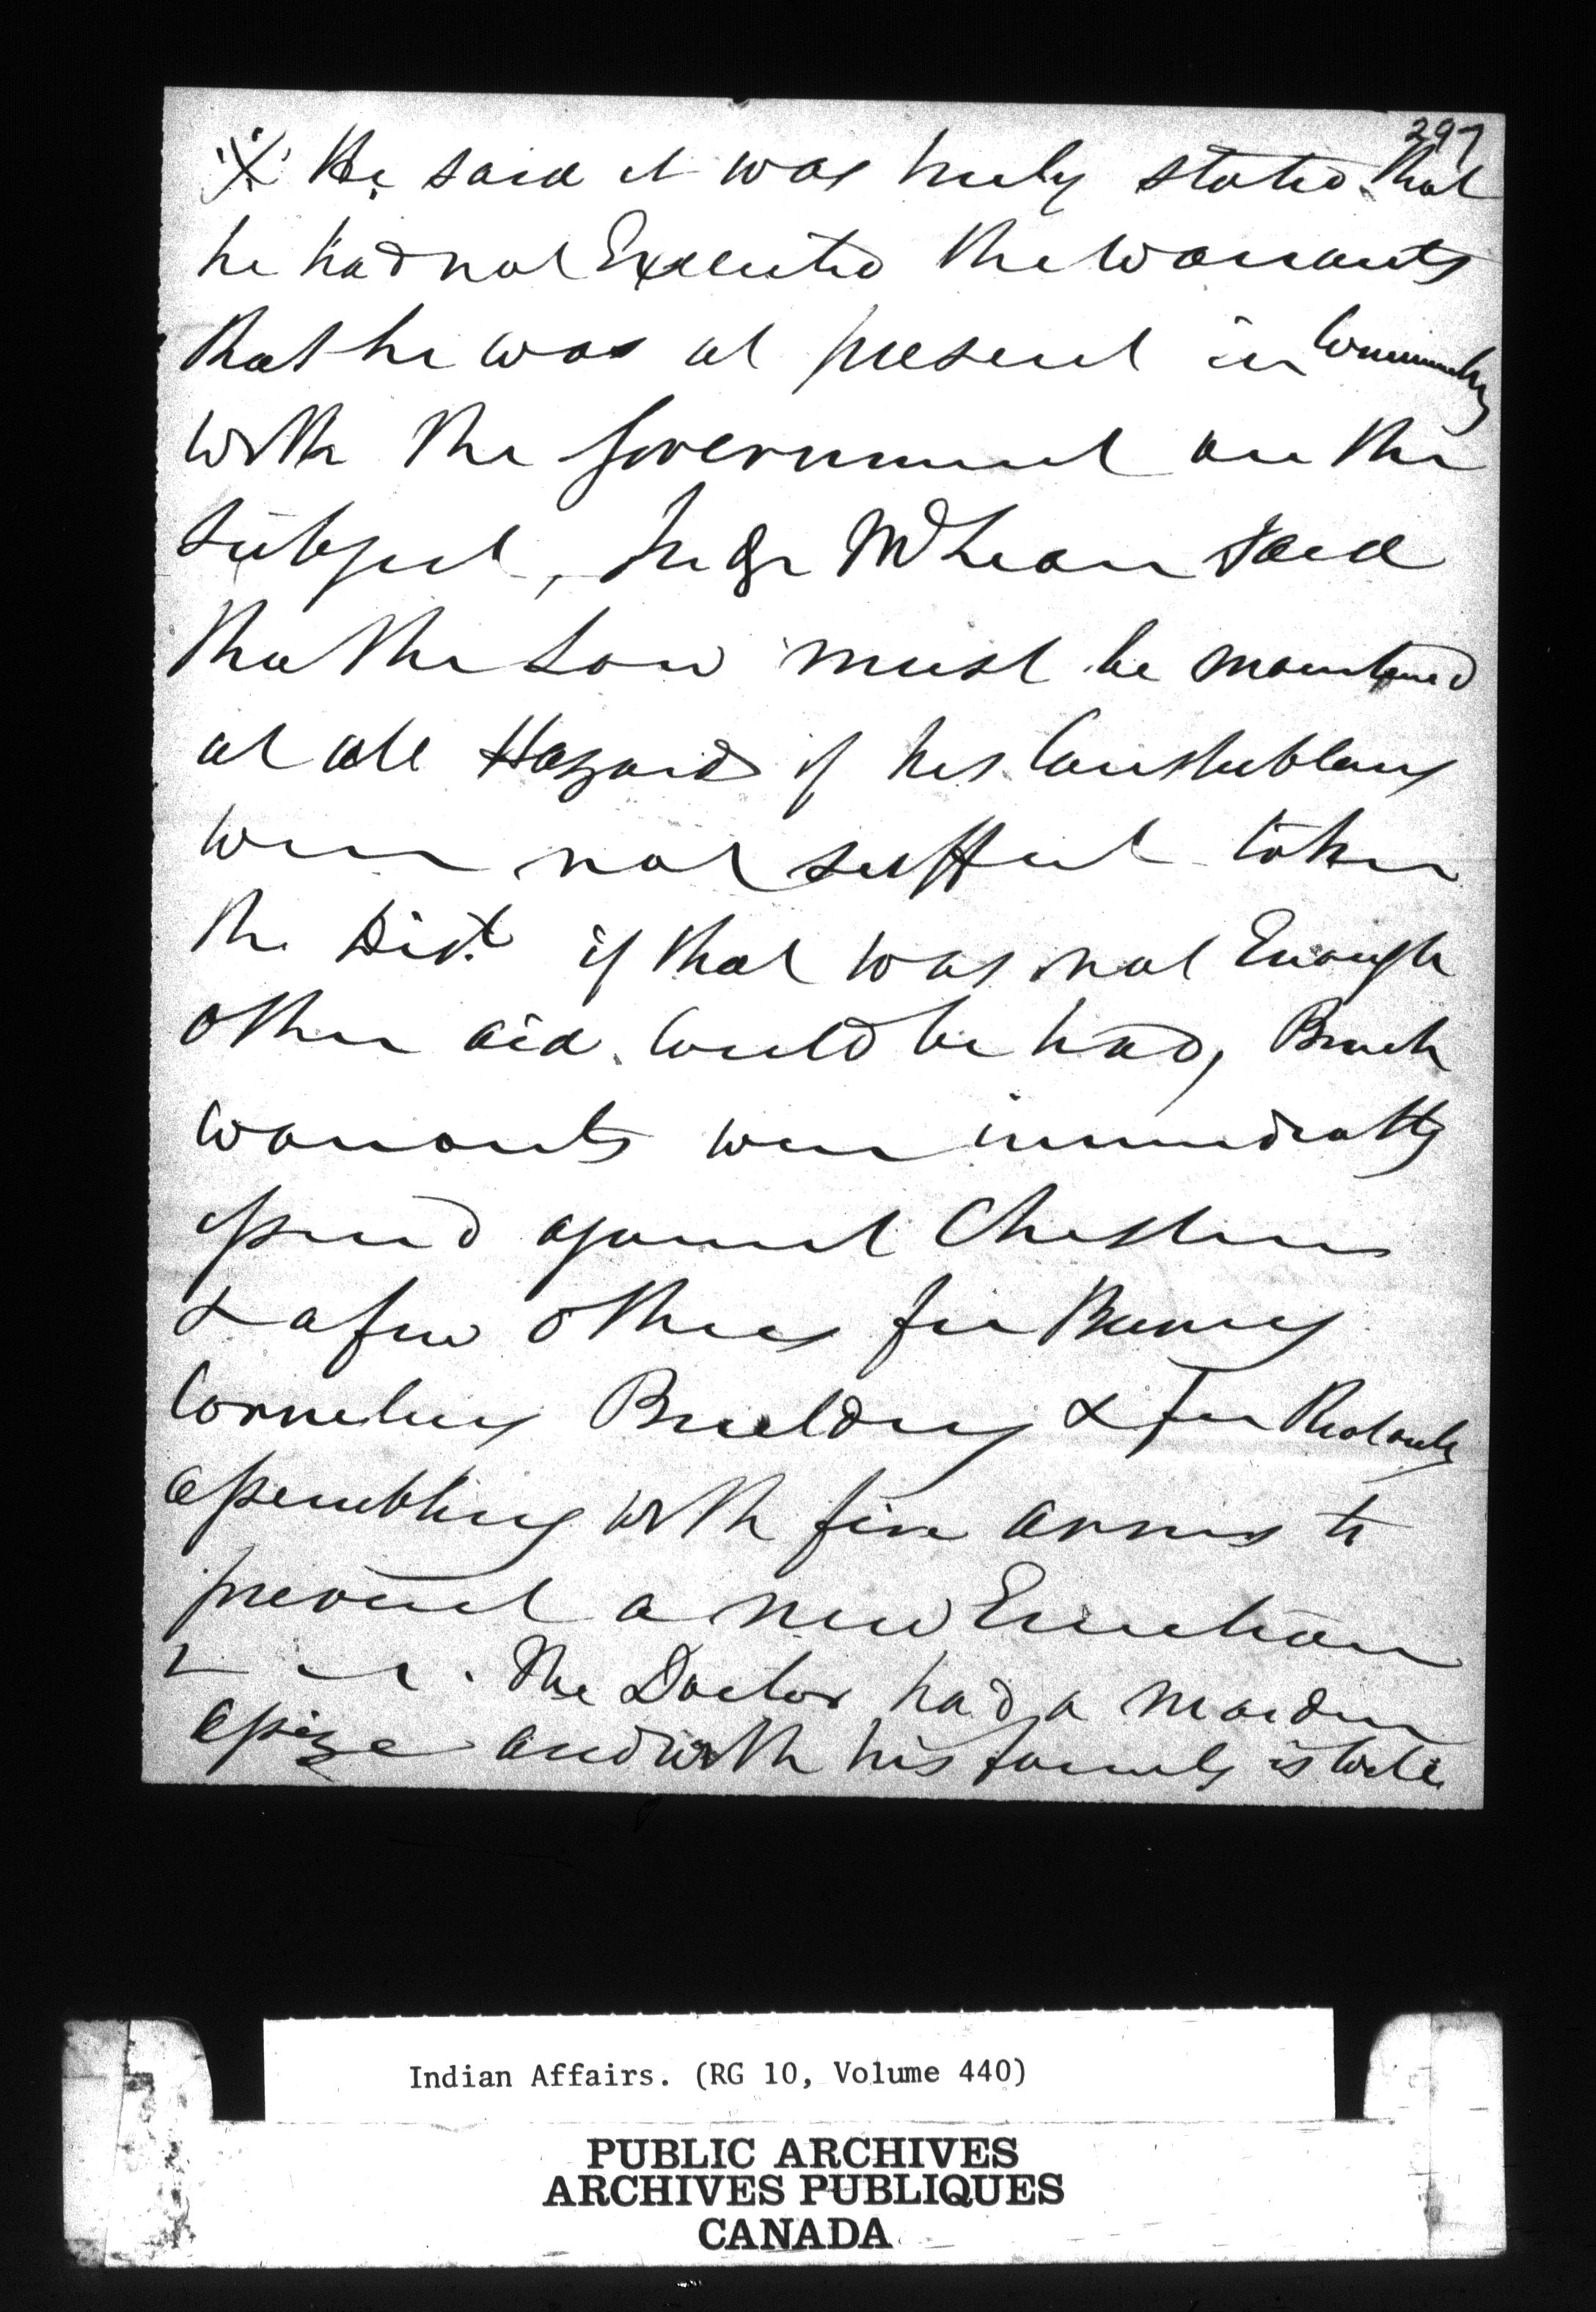 297
He said it was truly stated that
he had not Executed the Warrants
that he was at present in Community
with the Government on the
Subject, Judge McLean said
that the Law must be maintained
at all Hazards if his Constablery
were not suffient take
the Dist. if that was not Enough
other aid Could be had, Bench
warrants were immediatly
issued against
& a few others for Burning
Cornelius Building & for Riotously
assembling with fire arms to
prevent a new Erection
The Doctor had a maiden
assize and with his family is well
Indian Affairs. (RG 10, Volume 440)
PUBLIC ARCHIVES
ARCHIVES PUBLIQUES
CANADA